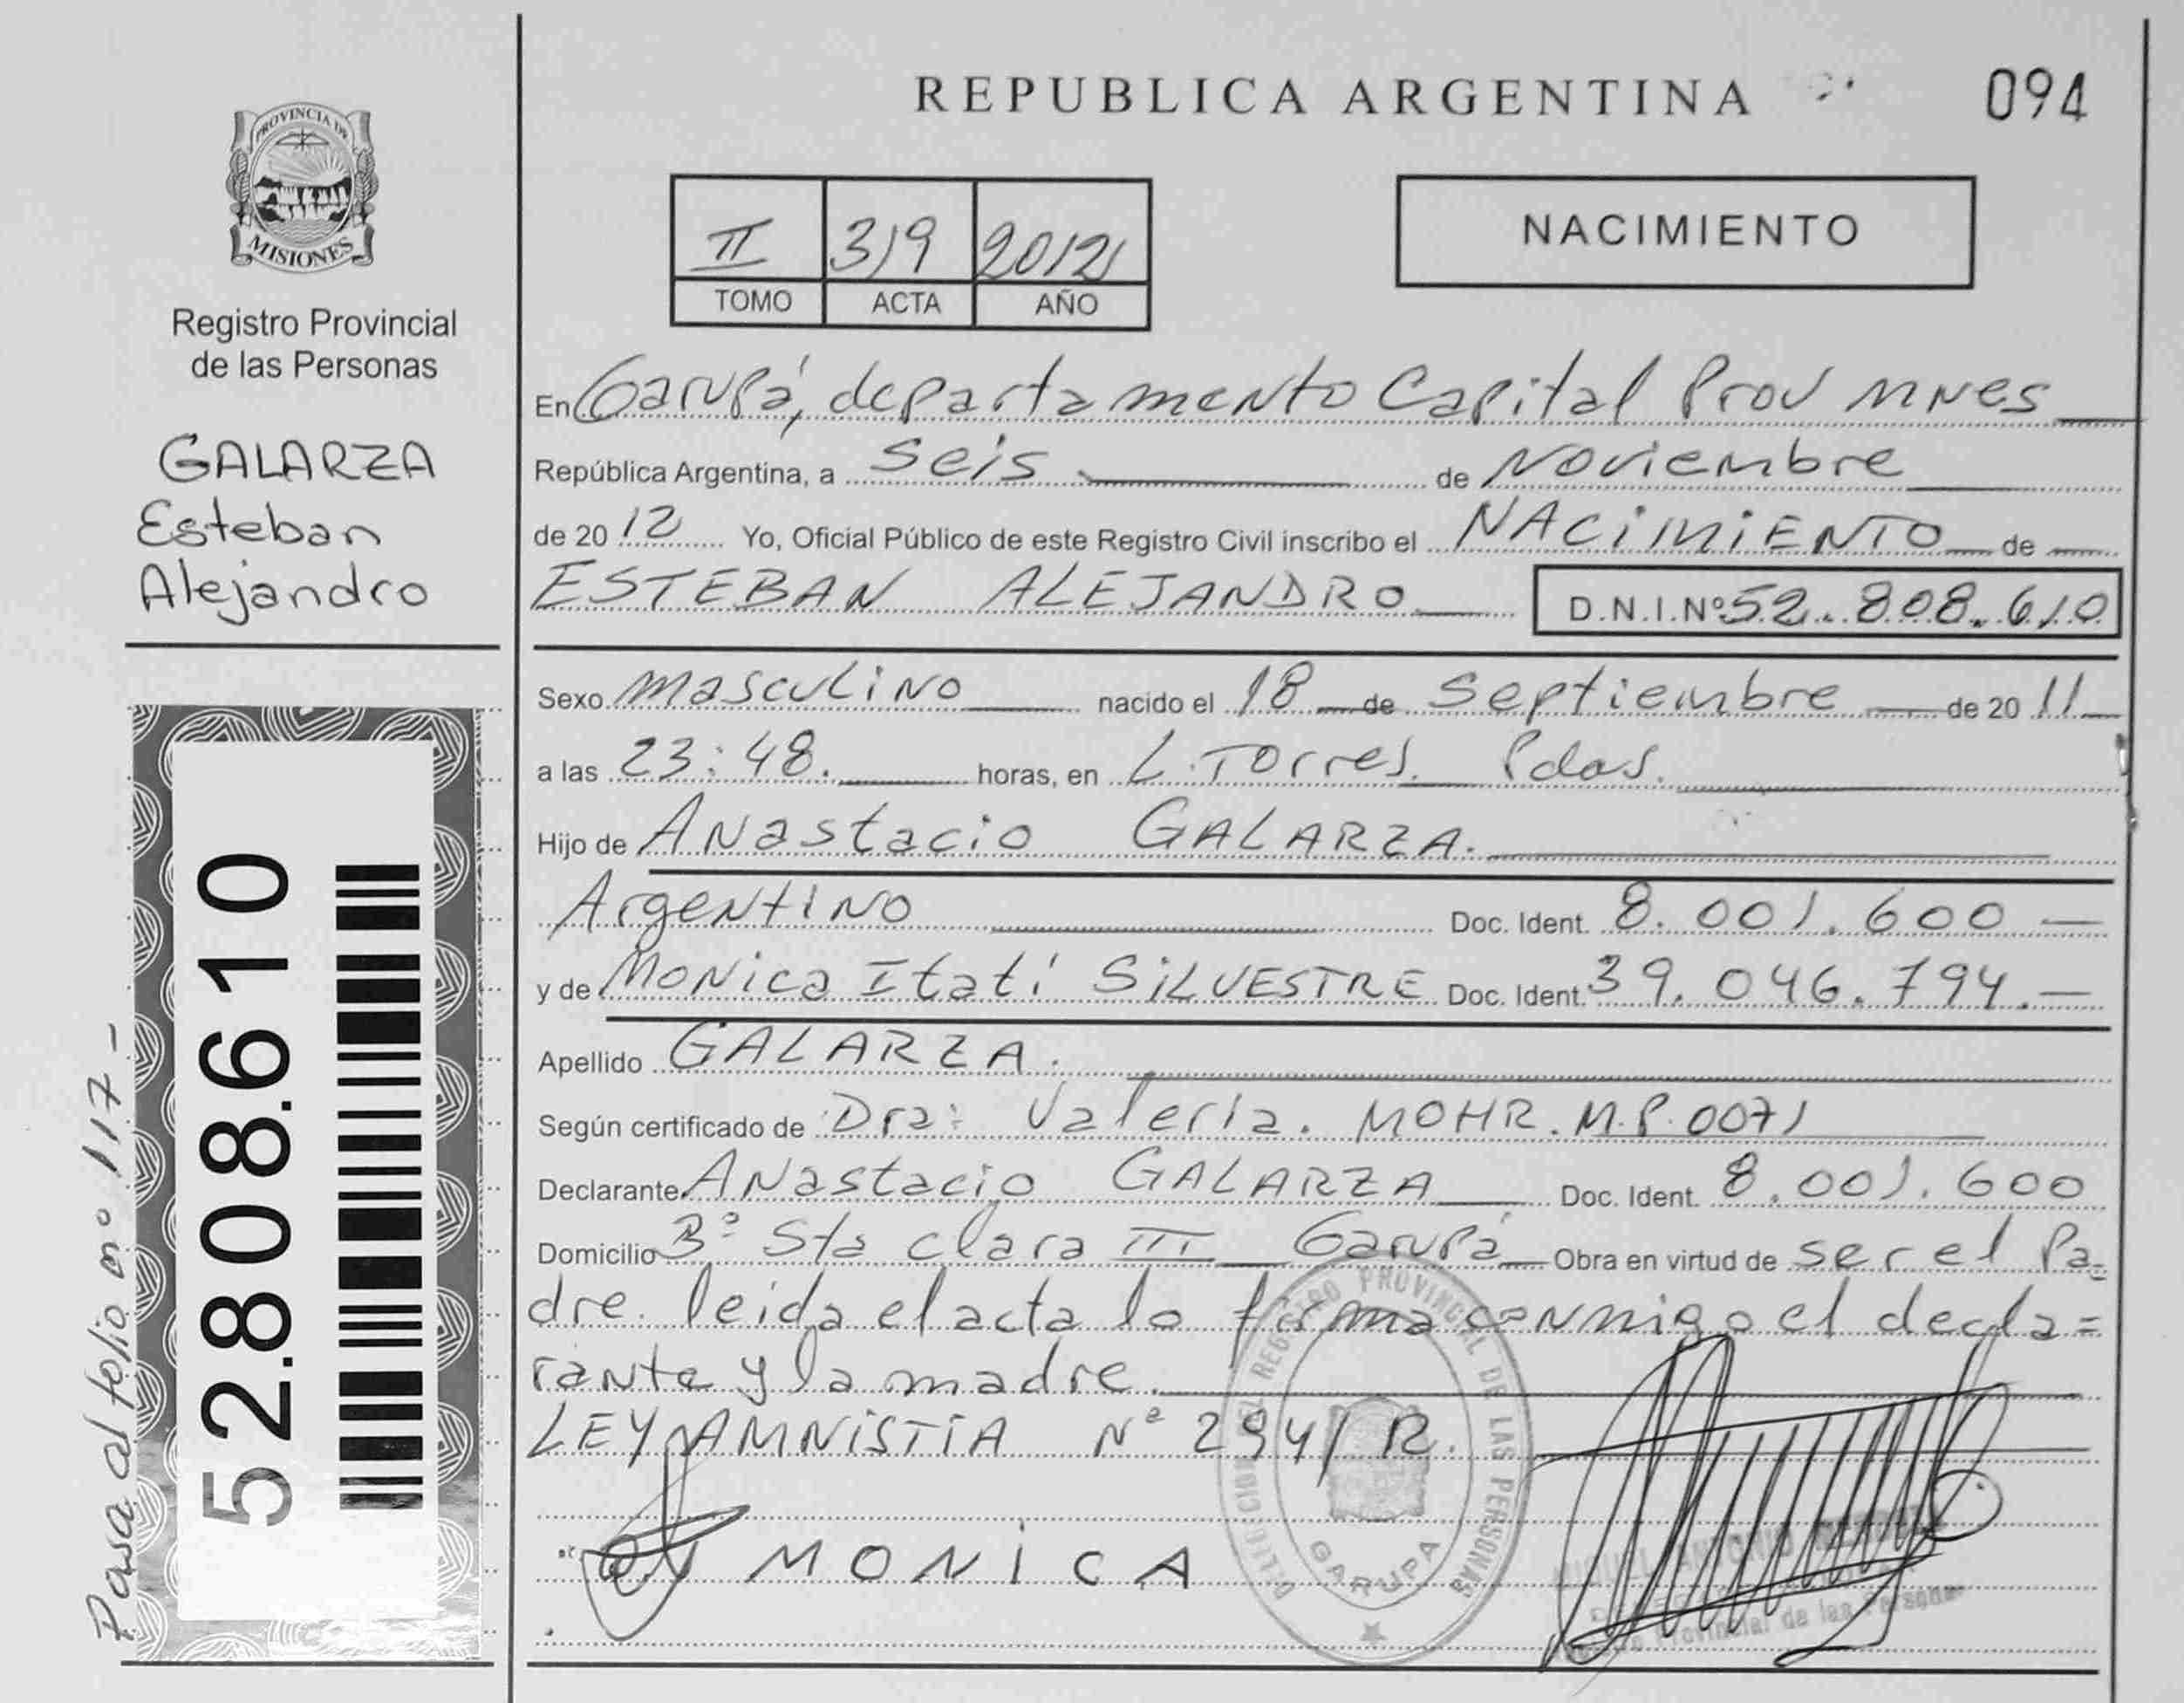 REPUBLICA ARGENTINA
094
PROVINCIA DE
MISIONES
Registro Provincial
de las Personas
GALARZA
Esteban
Alejandro
52.808.610
Pasa al folio nº 117-
II 319 2012
TOMO ACTA AÑO
NACIMIENTO
En Garupá, departamento Capital Prov Mnes
República Argentina, a seis de Noviembre
de 2012 Yo, Oficial Público de este Registro Civil inscribo el NACIMIENTO de
ESTEBAN ALEJANDRO D.N.I.Nº 52.808.610
Sexo masculino nacido el 18 de Septiembre de 2011
a las 23:48. horas, en L. Torres. Pdas.
Hijo de Anastacio GALARZA.
Argentino Doc. Ident. 8.001.600
y de Monica Itatí SILVESTRE Doc. Ident. 39.046.794.
Apellido GALARZA.
Según certificado de Dra: Valeria. MOHR. M.P. 0071
Declarante Anastacio GALARZA Doc. Ident. 8.001.600
Domicilio Bº Sta clara III Garupá Obra en virtud de ser el Pa-
dre. leida el acta lo firma conmigo el decla=
rante y la madre.
LEY AMNISTIA Nº 294/12.
MONICA
DELEGACION DEL REGISTRO PROVINCIAL DE LAS PERSONAS
GARUPA
MIGUEL ANTONIO
Provincial de las Personas